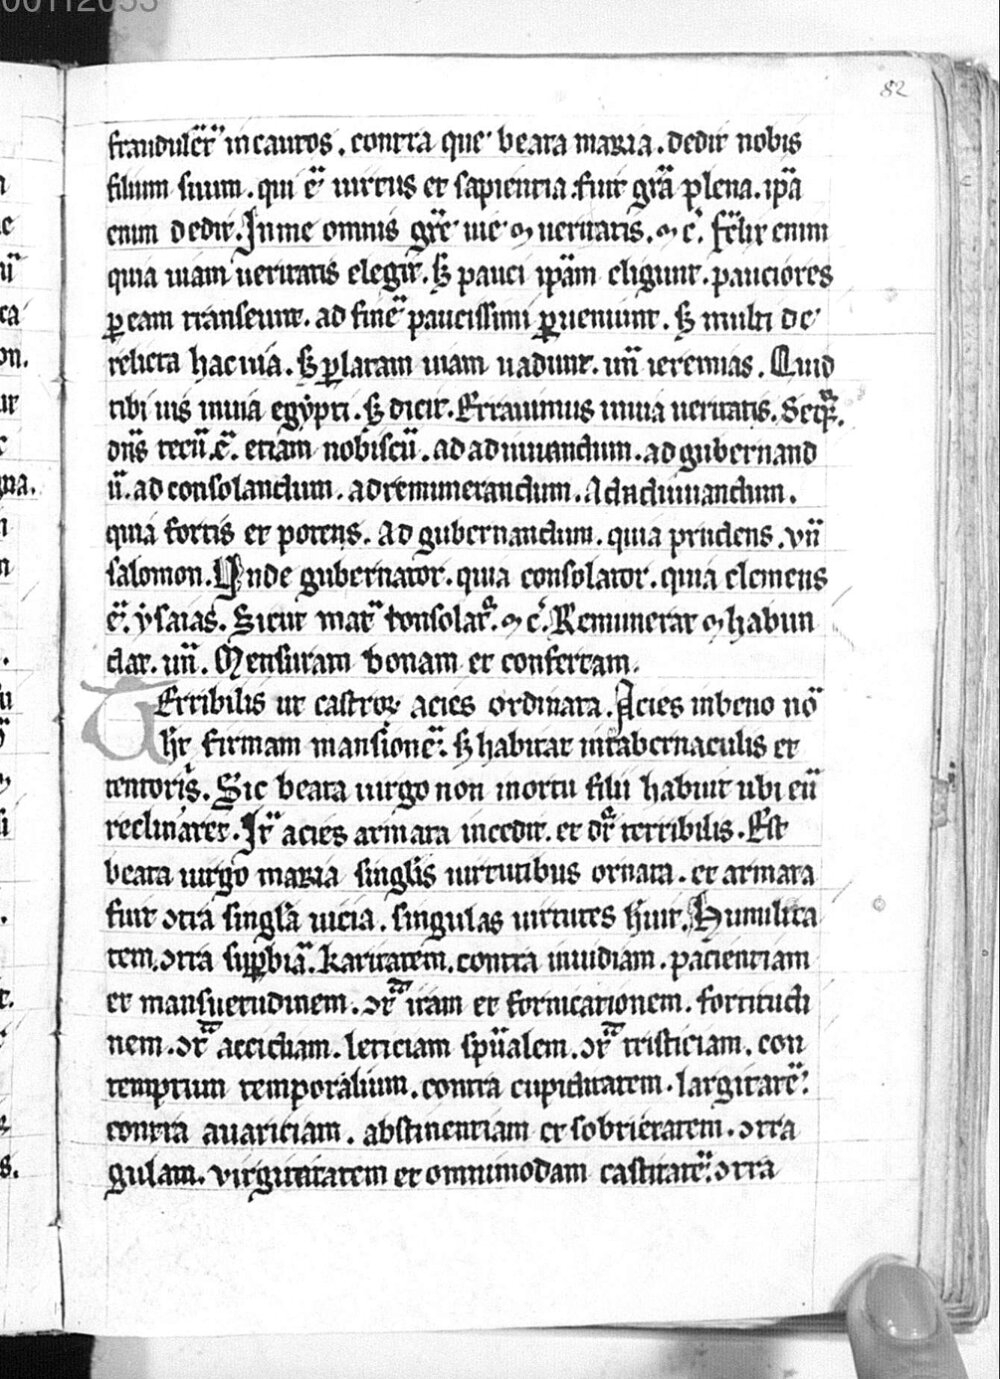 82
fraudulēt̄ incautos . contra que beata maria . dedit nobis
filium suum . qui ē uirtus et sapientia . fuit grā plena . ipā
enim dedit . In me omnis grē uie ⁊ ueritatis . ⁊ c̄ . felix enim
quia uiam ueritatis elegit . Sꝫ pauci ipām eligunt . pauciores
ꝑ eam transeunt . ad finē paucissimi ꝑueniunt . Sꝫ multi de
relicta hac uia . Sꝫ ꝑ latam uiam uadunt . un̄ ieremias . Quid
tibi uis in uia egypti . Sꝫ dicit . Errauimus in uia ueritatis . Seqr̄ .
dn̄s tecū . ē . etiam nobiscū . ad adiuuandum . ad gubernand
ū . ad consolandum . ad remunerandum . Ad adiuuandum .
quia fortis et potens . Ad gubernandum . quia prudens . vn̄
salomon . Vnde gubernator . quia consolator . quia clemens
ē . ysaias . Sicut mat̄ consolat̄ . ⁊ c̄ . Remunerat ⁊ habun
dat . un̄ . Mensuram bonam et confertam .
Terribilis ut castroꝝ acies ordinata . Acies in beno nō
hr̄ firmam mansionē . Sꝫ habitat in tabernaculis et
tentoriis . Sic beata uirgo non in ortu filii habuit ubi eū
reclinaret . It̄ acies armata incedit . et dr̄ terribilis . Est
beata uirgo maria singlis uirtutibus ornata . et armata
fuit ↄtra singla uicia . singulas uirtutes huit . Humilita
tem . ↄtra suꝑbiā . karitatem . contra inuidiam . pacientiam
et mansuetudinem . ↄtᵃ iram et fornicationem . fortitudi
nem . ↄtᵃ accidiam . leticiam spūalem . ↄtᵃ tristiciam . con
temptum temporalium . contra cupiditatem . largitatē
contra auariciam . abstinentiam et sobrietatem . ↄtra
gulam . virginitatem et omnimodam castitatē . ↄtra